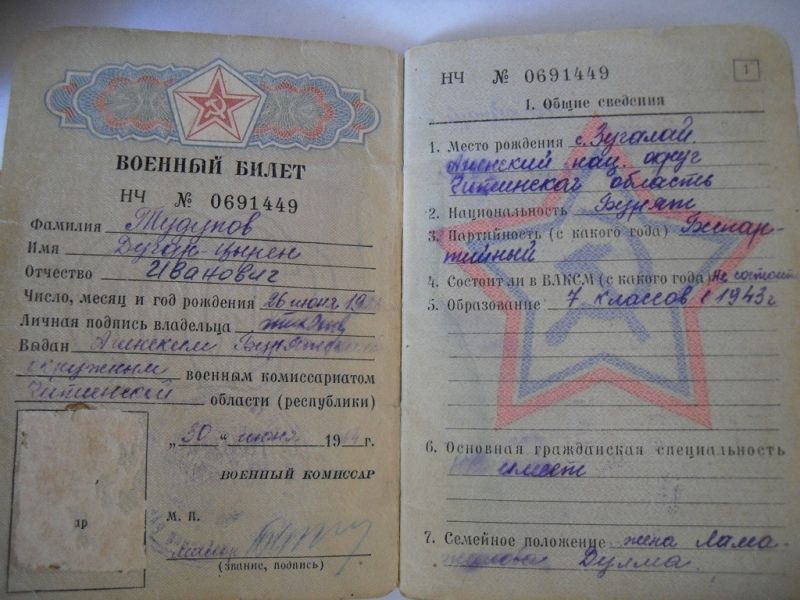 ВОЕННЫЙ БИЛЕТ
НЧ № 0691449
Фамилия Тудупов
Имя Дугар-Цырен
Отчество Иванович
Число, месяц и год рождения 26 июня 19
Личная подпись владельца
Выдан Агинским Бурятским
окружным военным комиссариатом
Читинской области (республики)
„30" июня 196 г.
ВОЕННЫЙ КОМИССАР
М. П.
майор
(звание, подпись)
НЧ № 0691449
1
I. Общие сведения
1. Место рождения с. Зугалай
Агинский нац. округ
Читинской область
2. Национальность Бурят
3. Партийность (с какого года) Беспар-
тийный
4. Состоит ли в ВЛКСМ (с какого года) Не состоит
5. Образование 7 классов в 1943 г
6. Основная гражданская специальность
имеет
7. Семейное положение жена Лама-
Дулма